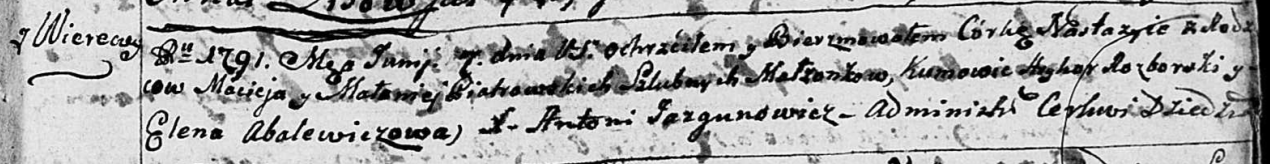 z Wiereczey
Ru 1791. Mca Junij. 7. dnia V.S. ochrzciłem y Bierzmowałem Córkę Nastazyie z Rodzi
cow Macieja y Małaniej Piotrowskich Szlubnych Małżonkow, Kumowie Rozborski y
Elena Abalewiczowa) X. Antoni Jazgunowicz - Administr Cerkwi